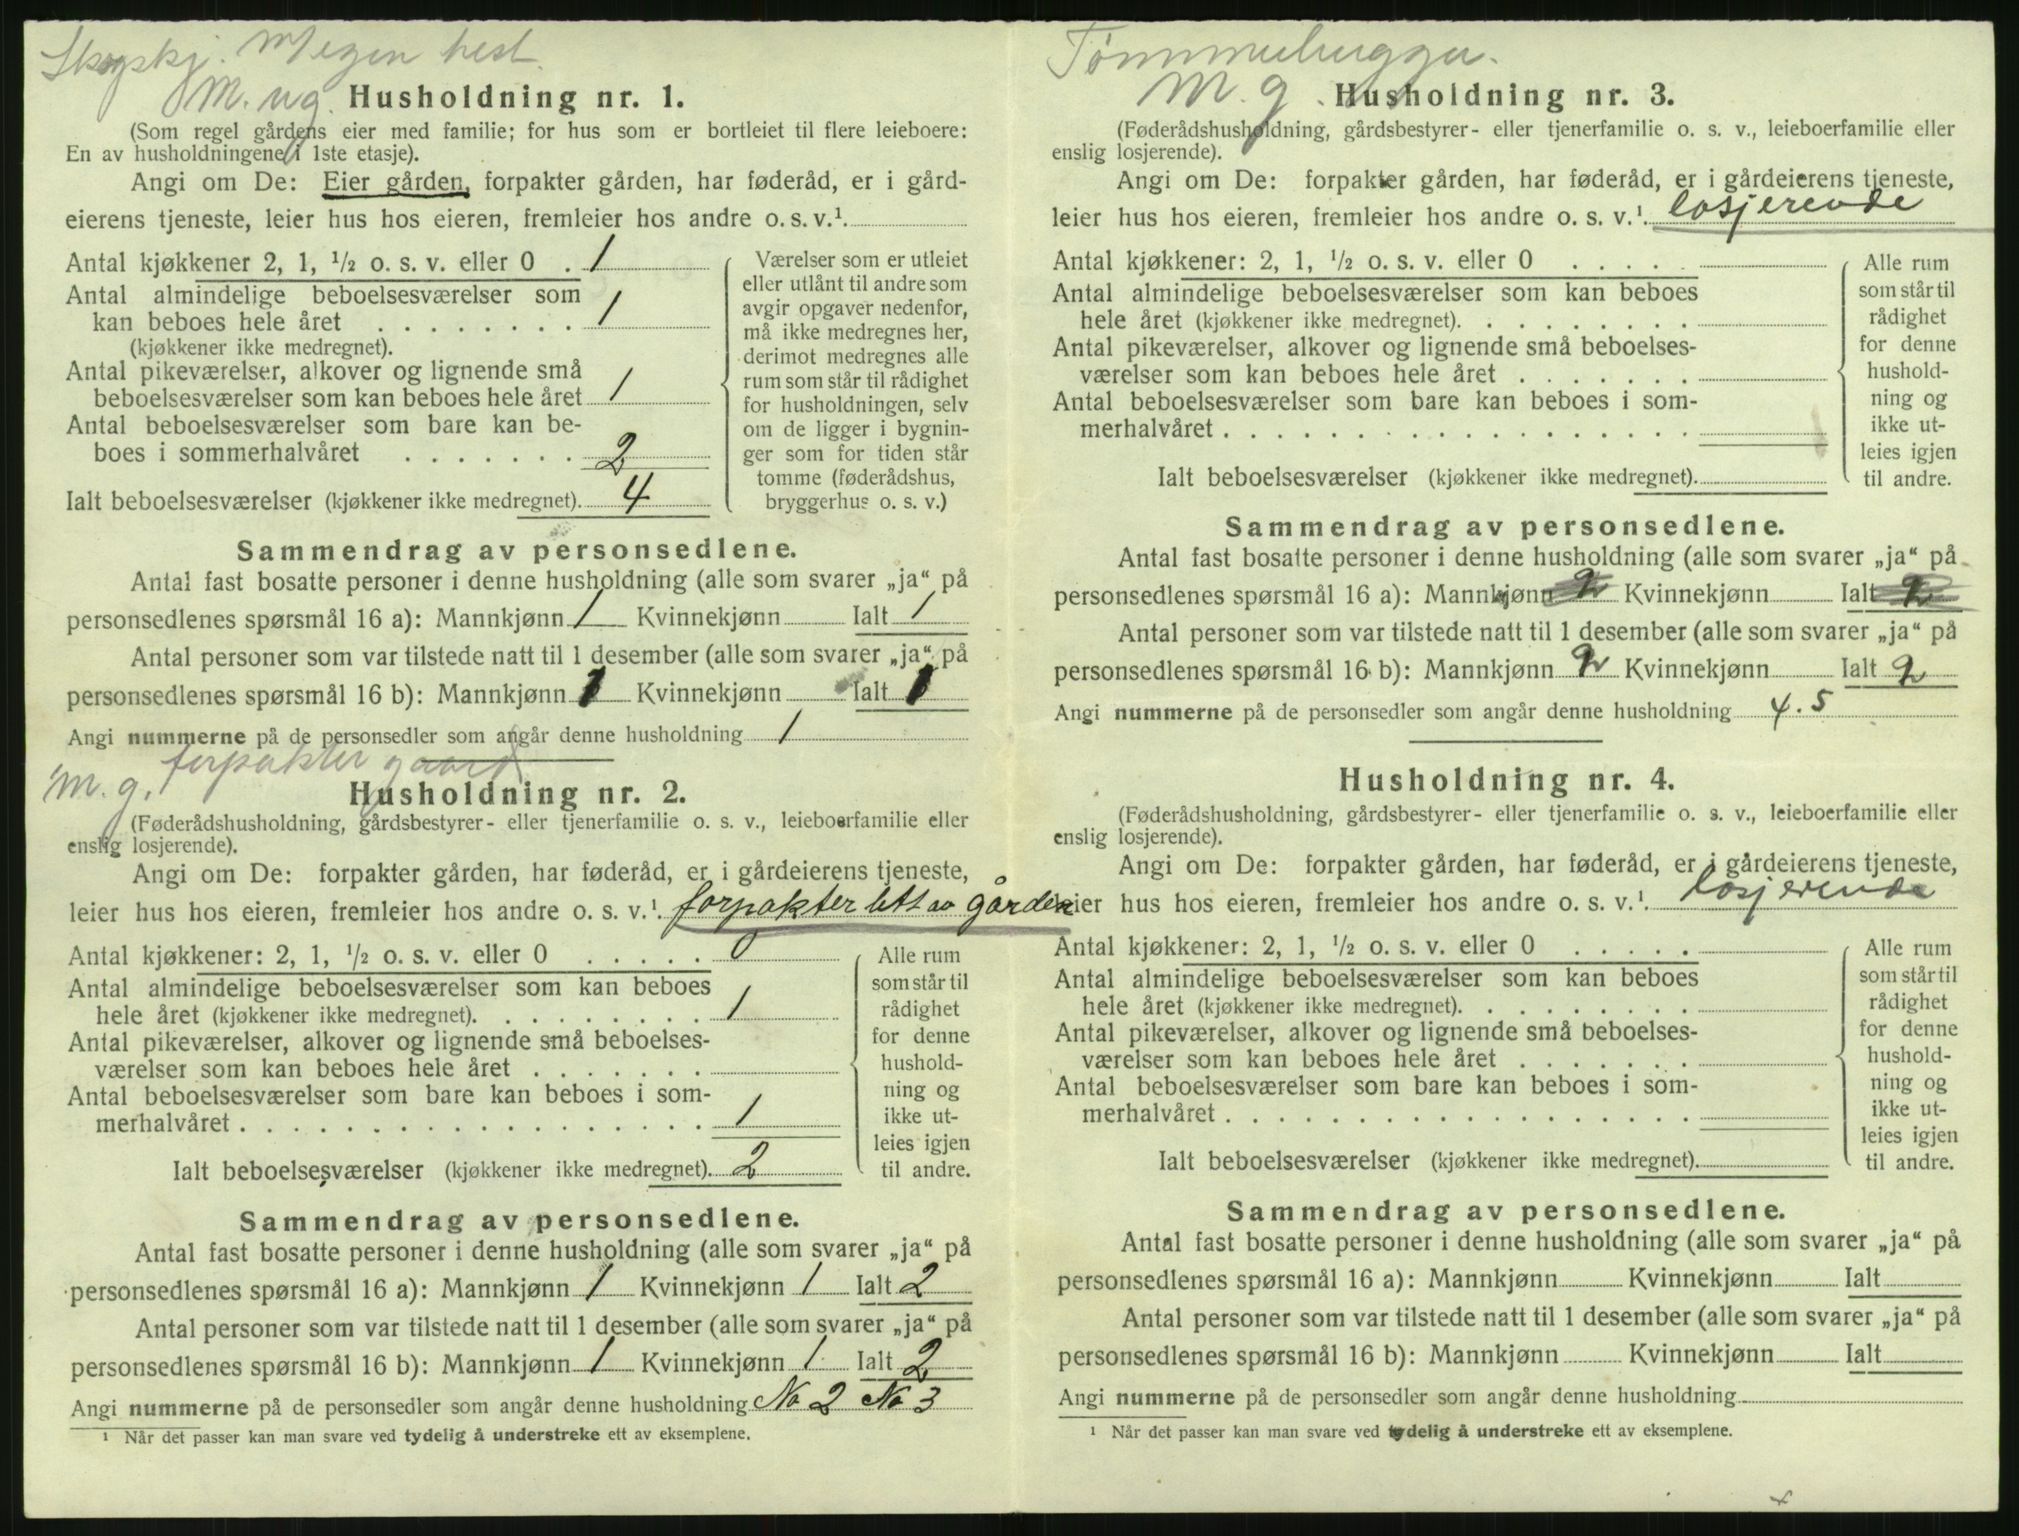 Skogskj. M egen hest.
M. ug. Husholdning nr. 1.
(Som regel gårdens eier med familie; for hus som er bortleiet til flere leieboere:
En av husholdningene i 1ste etasje).
Angi om De: Eier gården, forpakter gården, har føderåd, er i gård-
eierens tjeneste, leier hus hos eieren, fremleier hos andre o. s. v.¹
Antal kjøkkener 2, 1, ½ o. s. v. eller 0 . 1
Antal almindelige beboelsesværelser som
kan beboes hele året . . . . . . . . 1
(kjøkkener ikke medregnet).
Antal pikeværelser, alkover og lignende små
beboelsesværelser som kan beboes hele året 1
Antal beboelsesværelser som bare kan be-
boes i sommerhalvåret . . . . . . . 2
Ialt beboelsesværelser (kjøkkener ikke medregnet). 4
Værelser som er utleiet
eller utlånt til andre som
avgir opgaver nedenfor,
må ikke medregnes her,
derimot medregnes alle
rum som står til rådighet
for husholdningen, selv
om de ligger i bygnin-
ger som for tiden står
tomme (føderådshus,
bryggerhus o. s. v.)
Sammendrag av personsedlene.
Antal fast bosatte personer i denne husholdning (alle som svarer „ja“ på
personsedlenes spørsmål 16 a): Mannkjønn 1 Kvinnekjønn Ialt 1
Antal personer som var tilstede natt til 1 desember (alle som svarer „ja“ på
personsedlenes spørsmål 16 b): Mannkjønn 1 Kvinnekjønn Ialt 1
Angi nummerne på de personsedler som angår denne husholdning 1
M. g. forpakter gaard
Husholdning nr. 2.
(Føderådshusholdning, gårdsbestyrer- eller tjenerfamilie o. s. v., leieboerfamilie eller
enslig losjerende).
Angi om De: forpakter gården, har føderåd, er i gårdeierens tjeneste,
leier hus hos eieren, fremleier hos andre o. s. v.¹ forpakter litt av gården
Antal kjøkkener: 2, 1, ½ o. s. v. eller 0 . . . . . 0
Antal almindelige beboelsesværelser som kan beboes
hele året (kjøkkener ikke medregnet). . . . . . . . . 1
Antal pikeværelser, alkover og lignende små beboelses-
værelser som kan beboes hele året . . . . . . .
Antal beboelsesværelser som bare kan beboes i som-
merhalvåret . . . . . . . . . . . . . . . . . . 1
Ialt beboelsesværelser (kjøkkener ikke medregnet). 2
Alle rum
som står til
rådighet
for denne
hushold-
ning og
ikke ut-
leies igjen
til andre.
Sammendrag av personsedlene.
Antal fast bosatte personer i denne husholdning (alle som svarer „ja“ på
personsedlenes spørsmål 16 a): Mannkjønn 1 Kvinnekjønn 1 Ialt 2
Antal personer som var tilstede natt til 1 desember (alle som svarer „ja“ på
personsedlenes spørsmål 16 b): Mannkjønn 1 Kvinnekjønn 1 Ialt 2
Angi nummerne på de personsedler som angår denne husholdning No 2 No 3
¹ Når det passer kan man svare ved tydelig å understreke ett av eksemplene.
Tømmerhugger.
M. g. Husholdning nr. 3.
(Føderådshusholdning, gårdsbestyrer- eller tjenerfamilie o. s. v., leieboerfamilie eller
enslig losjerende).
Angi om De: forpakter gården, har føderåd, er i gårdeierens tjeneste,
leier hus hos eieren, fremleier hos andre o. s. v.¹ losjerende
Antal kjøkkener: 2, 1, ½ o. s. v. eller 0 . . . . .
Antal almindelige beboelsesværelser som kan beboes
hele året (kjøkkener ikke medregnet). . . . . . . . .
Antal pikeværelser, alkover og lignende små beboelses-
værelser som kan beboes hele året . . . . . . .
Antal beboelsesværelser som bare kan beboes i som-
merhalvåret . . . . . . . . . . . . . . . . . .
Ialt beboelsesværelser (kjøkkener ikke medregnet).
Alle rum
som står til
rådighet
for denne
hushold-
ning og
ikke ut-
leies igjen
til andre.
Sammendrag av personsedlene.
Antal fast bosatte personer i denne husholdning (alle som svarer „ja“ på
personsedlenes spørsmål 16 a): Mannkjønn 2 Kvinnekjønn Ialt 2
Antal personer som var tilstede natt til 1 desember (alle som svarer „ja“ på
personsedlenes spørsmål 16 b): Mannkjønn 2 Kvinnekjønn Ialt 2
Angi nummerne på de personsedler som angår denne husholdning 4. 5
Husholdning nr. 4.
(Føderådshusholdning, gårdsbestyrer- eller tjenerfamilie o. s. v., leieboerfamilie eller
enslig losjerende).
Angi om De: forpakter gården, har føderåd, er i gårdeierens tjeneste,
leier hus hos eieren, fremleier hos andre o. s. v.¹ losjerende
Antal kjøkkener: 2, 1, ½ o. s. v. eller 0 . . . . .
Antal almindelige beboelsesværelser som kan beboes
hele året (kjøkkener ikke medregnet). . . . . . . . .
Antal pikeværelser, alkover og lignende små beboelses-
værelser som kan beboes hele året . . . . . . .
Antal beboelsesværelser som bare kan beboes i som-
merhalvåret . . . . . . . . . . . . . . . . . .
Ialt beboelsesværelser (kjøkkener ikke medregnet).
Alle rum
som står til
rådighet
for denne
hushold-
ning og
ikke ut-
leies igjen
til andre.
Sammendrag av personsedlene.
Antal fast bosatte personer i denne husholdning (alle som svarer „ja“ på
personsedlenes spørsmål 16 a): Mannkjønn Kvinnekjønn Ialt
Antal personer som var tilstede natt til 1 desember (alle som svarer „ja“ på
personsedlenes spørsmål 16 b): Mannkjønn Kvinnekjønn Ialt
Angi nummerne på de personsedler som angår denne husholdning
¹ Når det passer kan man svare ved tydelig å understreke ett av eksemplene.